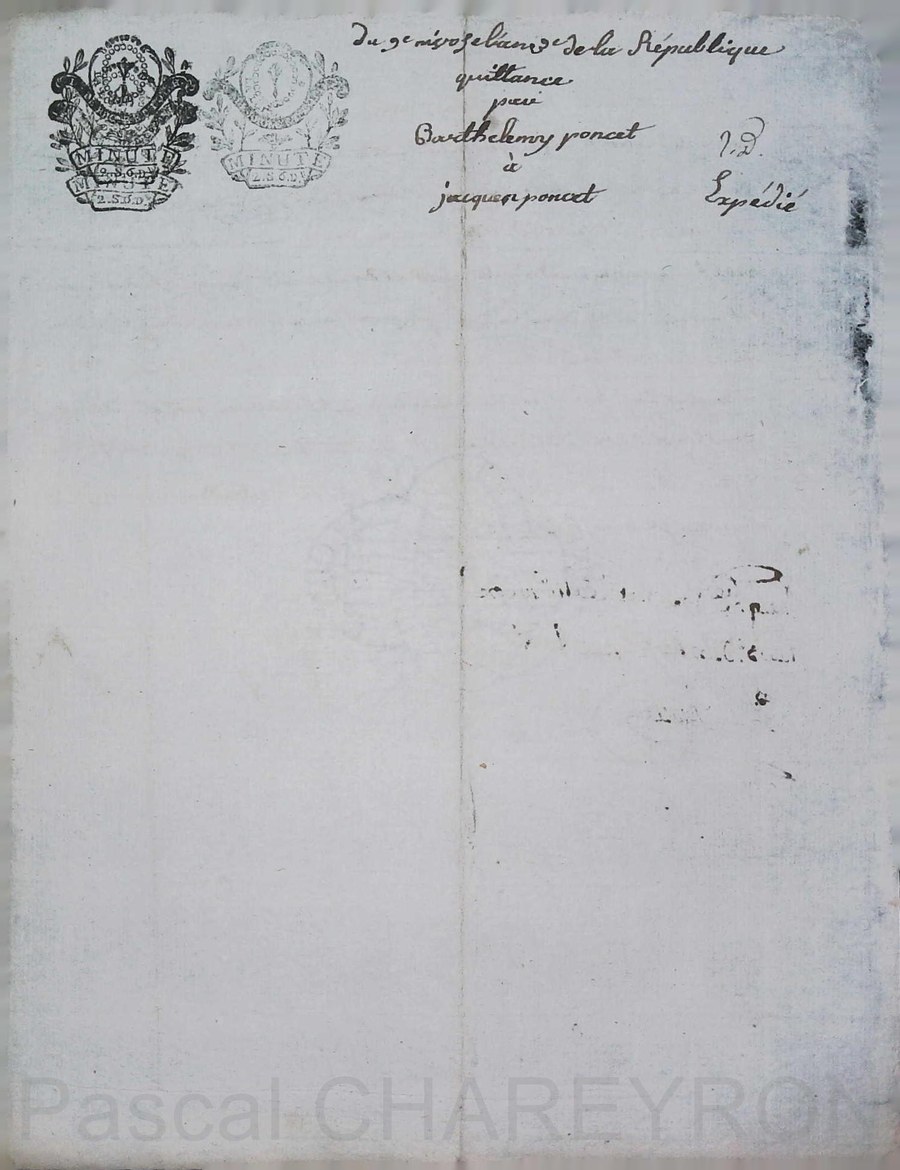 MINUTE
2.S.6.D.
MINUTE
2.S.6.D.
MINUTE
2.S.6.D.
du 9e nivose l'an 3e de la République
quittance
par
Barthelemy poncet
à
jacques poncet
Expédié
Pascal CHAREYRON